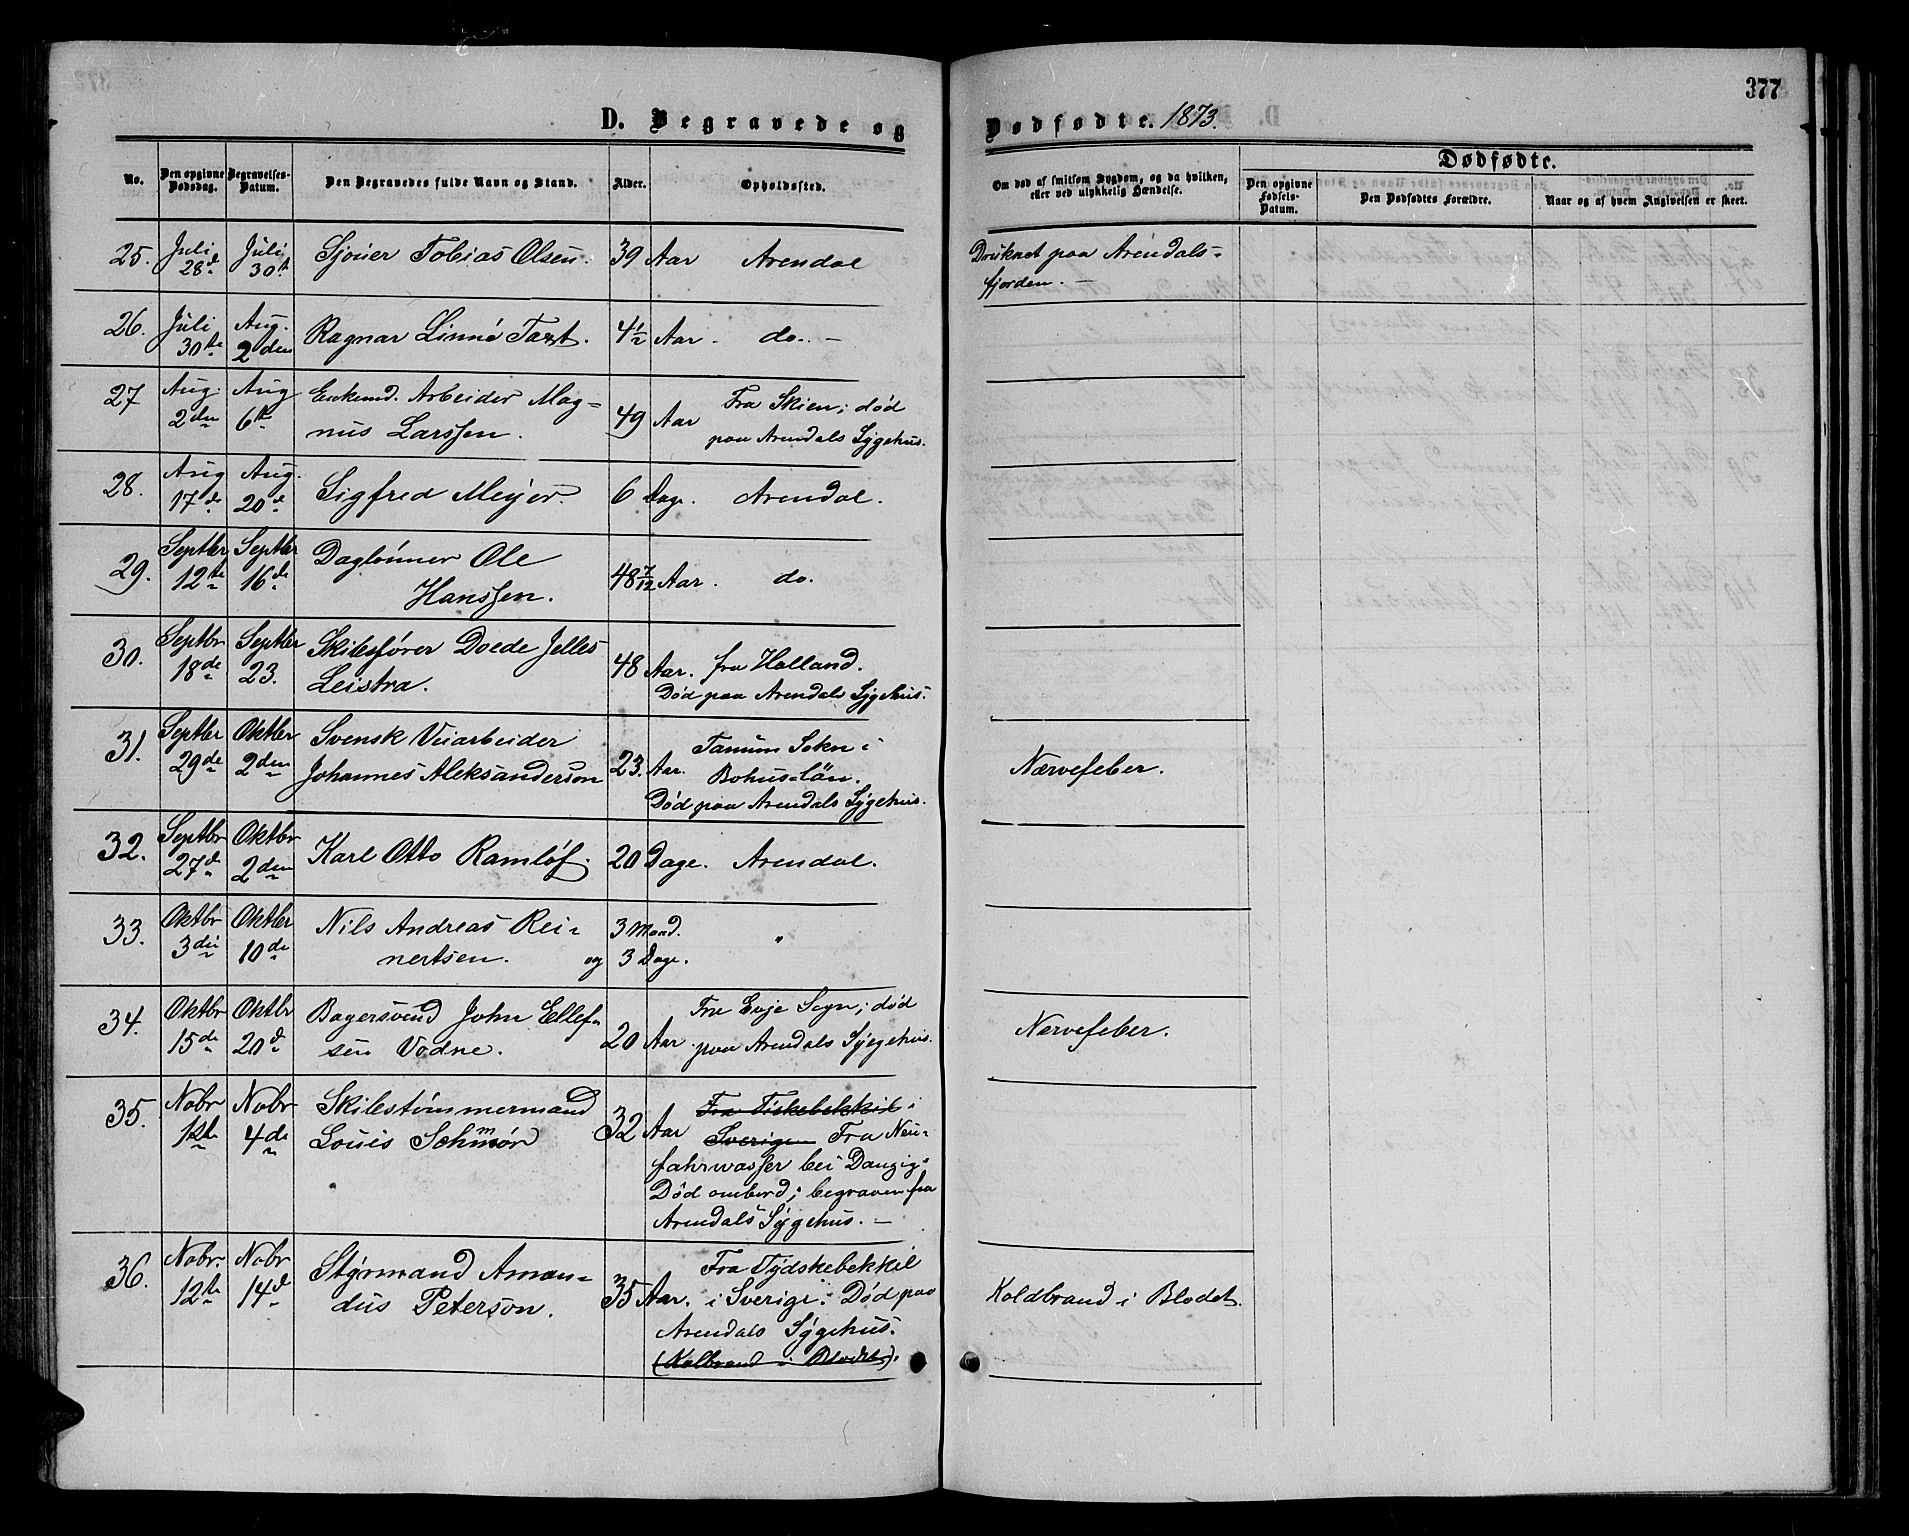 377
D. Begravede og Dødfødte. 1873.
No. | Den opgivne Dødsdag. | Begravelses-Datum. | Den Begravedes fulde Navn og Stand. | Alder. | Opholdssted. | Om død af smitsom Sygdom, og da hvilken, eller ved ulykkelig Hændelse. | Dødfødte. | Den opgivne Fødsels-Datum. | Den Dødfødtes Forældre. | Naar og af hvem Angivelsen er skeet.
25. Juli Juli Sjøuer Tobias Olsen. 39 Aar Arendal Druknet paa Arendals-
28d 30te fjorden. —
26. Juli Aug. Ragnar Linné 4½ Aar. do. —
30te 2den
27 Aug. Aug Enkemd. Arbeider Mag- 49 Aar Fra Skien; død
2den 6te nus Larssen. paa Arendals Sygehus.
28. Aug Aug. Sigfred Meyer. 6 Dage. Arendal.
17de 20de
29. Septbr Septbr Daglønner Ole 48 7/12 Aar. do.
12te 16de Hanssen.
30. Septbr Septbr Skibsfører Doede Jelles 48 Aar. fra Holland.
18de 23. Leistra. Død paa Arendals Sygehus.
31. Septbr Oktbr Svensk Veiarbeider 23. Aar. Tanum Sokn i Nervefeber.
29de 2den Johannes Aleksanderson Bohus-län.
Død paa Arendals Sygehus.
32. Septbr Oktbr Karl Otto Ramløf. 20 Dage. Arendal.
27d 2den
33. Oktbr Oktbr Nils Andreas Rei- 3 Maad. "
3die 10de nertsen. og 3 Dage.
34. Oktbr Oktbr Bagersvend John Ellef- 20 Aar. Fra Evje Sogn; død Nervefeber.
15de 20d sen Vodne. paa Arendals Sygehus.
35. Nobr Nobr Skibstømmermand 32 Aar Fra Tiskebekkil i
1ste 4de Louis Schmör Sverige Fra Neu-
fahrwasser bei Danzig.
Død ombord; begraven fra
Arendals Sygehus. —
36. Nobr. Nobr Styrmand Aman- 35 Aar. Fra Tydskebekkil Koldbrand i Blodet.
12te 14d dus Peterson. i Sverige. Død paa
Arendals Sygehus.
(Kolbrand i Blodet).